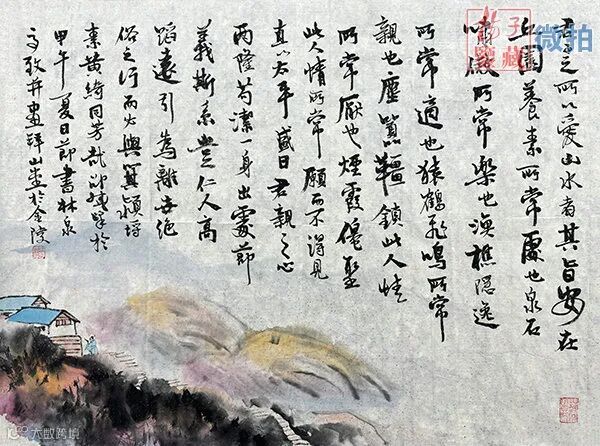 君子之所以愛山水者其旨安在
丘園養素所常處也泉石
嘯傲所常樂也漁樵隱逸
所常適也猿鶴飛鳴所常
親也塵囂韁鎖此人情
所常厭也煙霞僊聖
此人情所常願而不得見
真以太平盛日君親之心
兩隆苟潔一身出處節
義斯系豈仁人高
蹈遠引為離世絕
俗之行而必與箕潁埒
素黃綺同芳哉
甲午夏日節書林泉
高致并畫 於金陵
子
鑒藏
微拍
大数跨境